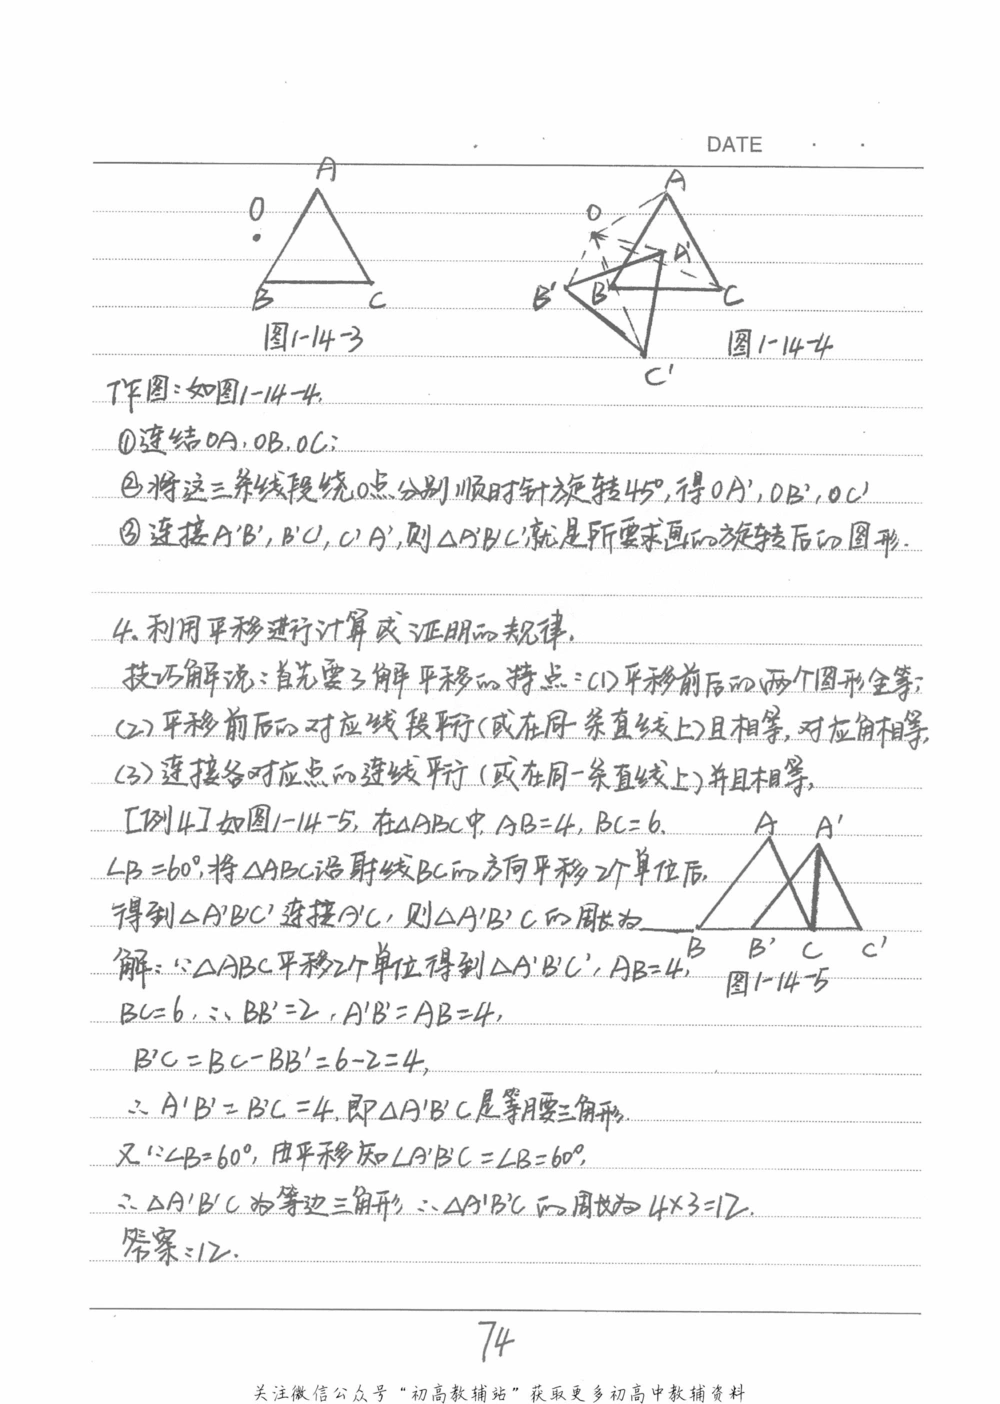 DATE
A
O
B
C
图1-14-3
A
O
A'
B'
B
C
C'
图1-14-4
作图:如图1-14-4.
①连结OA,OB,OC;
②将这三条线段绕O点分别顺时针旋转45°,得OA',OB',OC'
③连接A'B',B'C',C'A',则△A'B'C'就是所要求画的旋转后的图形.
4.利用平移进行计算或证明的规律.
技巧解说:首先要了解平移的特点:(1)平移前后的两个图形全等;
(2)平移前后的对应线段平行(或在同一条直线上)且相等,对应角相等,
(3)连接各对应点的连线平行(或在同一条直线上)并且相等.
[例4]如图1-14-5,在△ABC中,AB=4,BC=6.
∠B=60°,将△ABC沿射线BC的方向平移2个单位后,
得到△A'B'C'连接A'C,则△A'B'C的周长为____
A
A'
B
B'
C
C'
图1-14-5
解:∵△ABC平移2个单位得到△A'B'C',AB=4,
BC=6,∴BB'=2,A'B'=AB=4,
B'C=BC-BB'=6-2=4,
∴A'B'=B'C=4,即△A'B'C是等腰三角形.
又∵∠B=60°,由平移知∠A'B'C=∠B=60°,
∴△A'B'C为等边三角形,∴△A'B'C的周长为4×3=12.
答案:12.
74
关注微信公众号“初高教辅站”获取更多初高中教辅资料